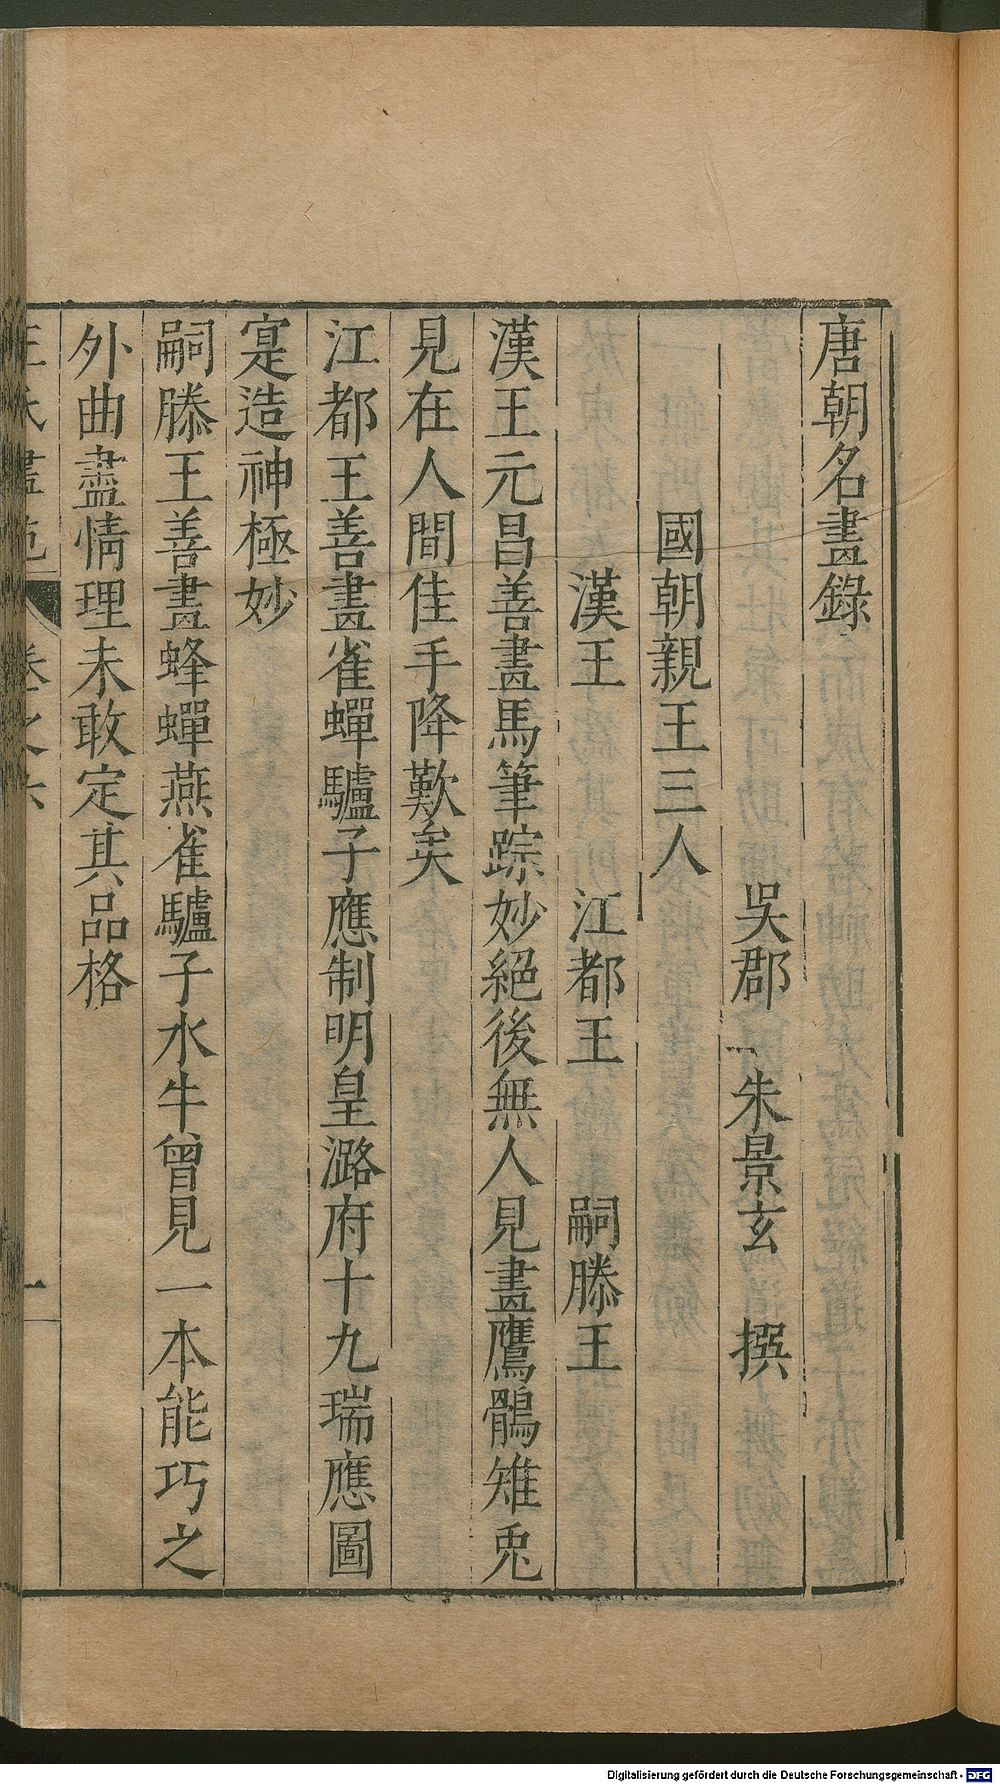 唐朝名畫錄
吳郡 朱景玄 撰
國朝親王三人
漢王 江都王 嗣滕王
漢王元昌善畫馬筆踪妙絕後無人見畫鷹鶻雉兎
見在人間佳手降歎矣
江都王善畫雀蟬驢子應制明皇潞府十九瑞應圖
寔造神極妙
嗣滕王善畫蜂蟬燕雀驢子水牛曾見一本能巧之
外曲盡情理未敢定其品格
王氏畫苑 卷之六 一
Digitalisierung gefördert durch die Deutsche Forschungsgemeinschaft - DFG